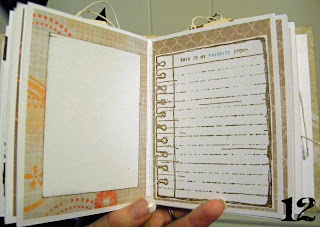 THIS IS MY FAVORITE STORY
12